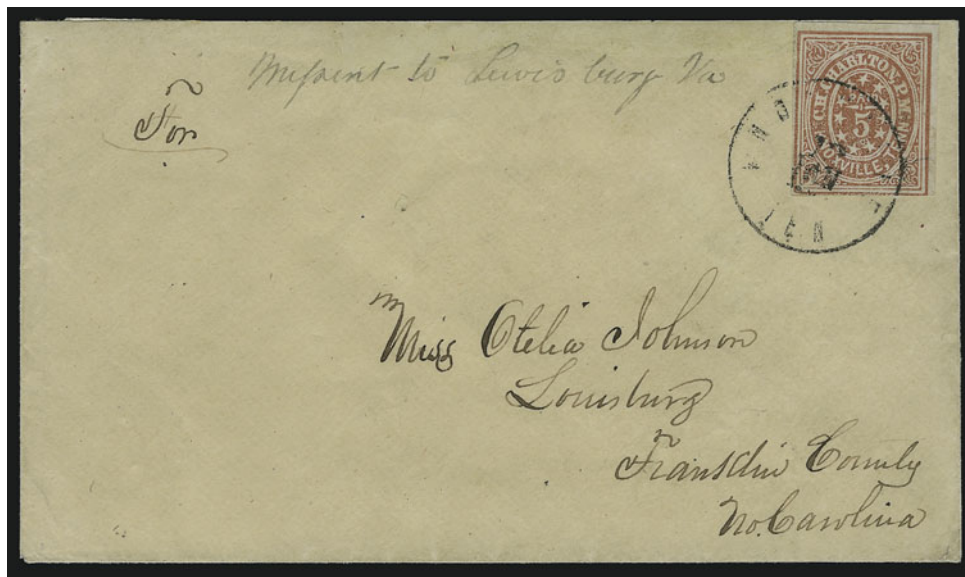 Missent to Lewisburg Va
For
C.H. CHARLTON. P.M.
PAID
5
KNOXVILLE, TEN
Miss Otelia Johnson
Louisburg
Franklin County
No. Carolina